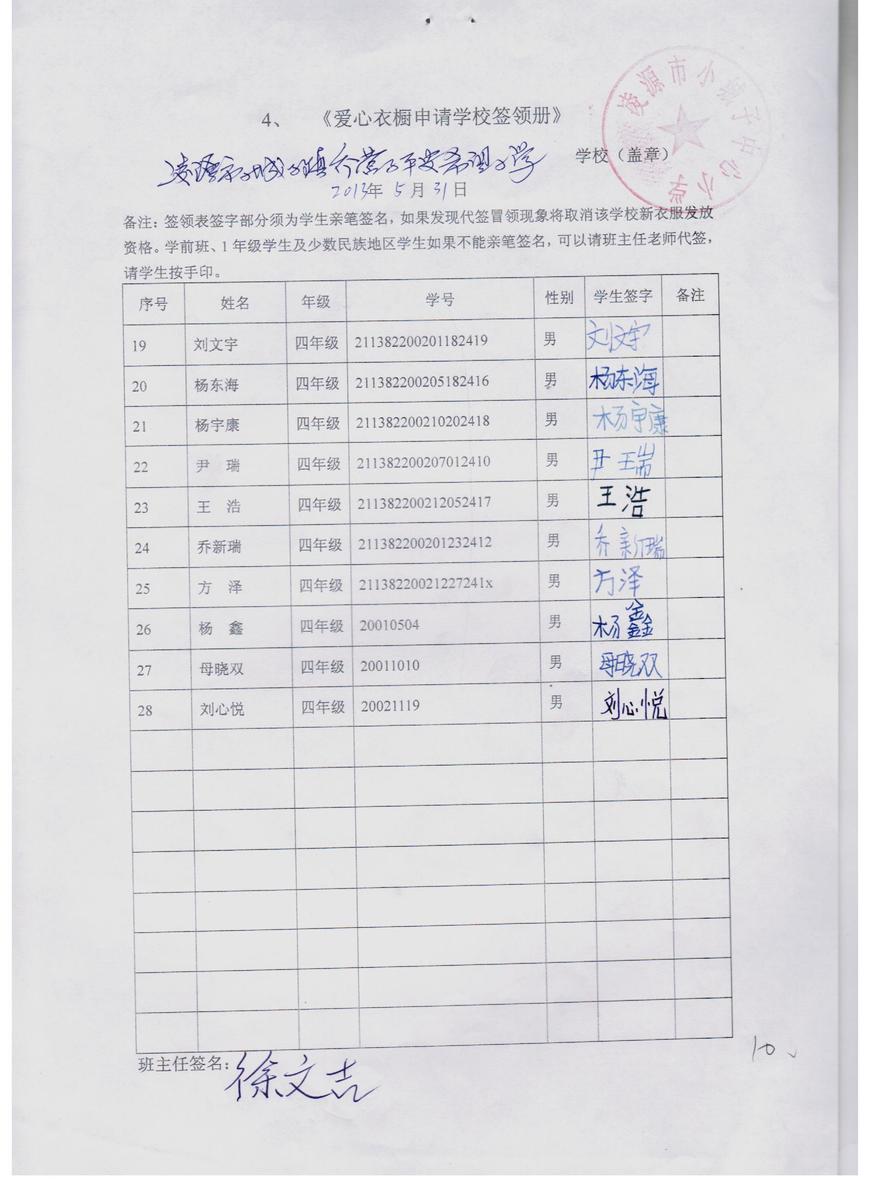 凌源市小城子中心小学
4、 《爱心衣橱申请学校签领册》
凌源市小城子镇乔营子平安希望小学 学校（盖章）
2013年 5 月 31 日
备注：签领表签字部分须为学生亲笔签名，如果发现代签冒领现象将取消该学校新衣服发放
资格。学前班、1 年级学生及少数民族地区学生如果不能亲笔签名，可以请班主任老师代签，
请学生按手印。
序号 姓名 年级 学号 性别 学生签字 备注
19 刘文宇 四年级 211382200201182419 男 刘文宇
20 杨东海 四年级 211382200205182416 男 杨东海
21 杨宇康 四年级 211382200210202418 男 杨宇康
22 尹 瑞 四年级 211382200207012410 男 尹瑞
23 王 浩 四年级 211382200212052417 男 王浩
24 乔新瑞 四年级 211382200201232412 男 乔新瑞
25 方 泽 四年级 21138220021227241x 男 方泽
26 杨 鑫 四年级 20010504 男 杨鑫
27 母晓双 四年级 20011010 男 母晓双
28 刘心悦 四年级 20021119 男 刘心悦
班主任签名：徐文吉
10、